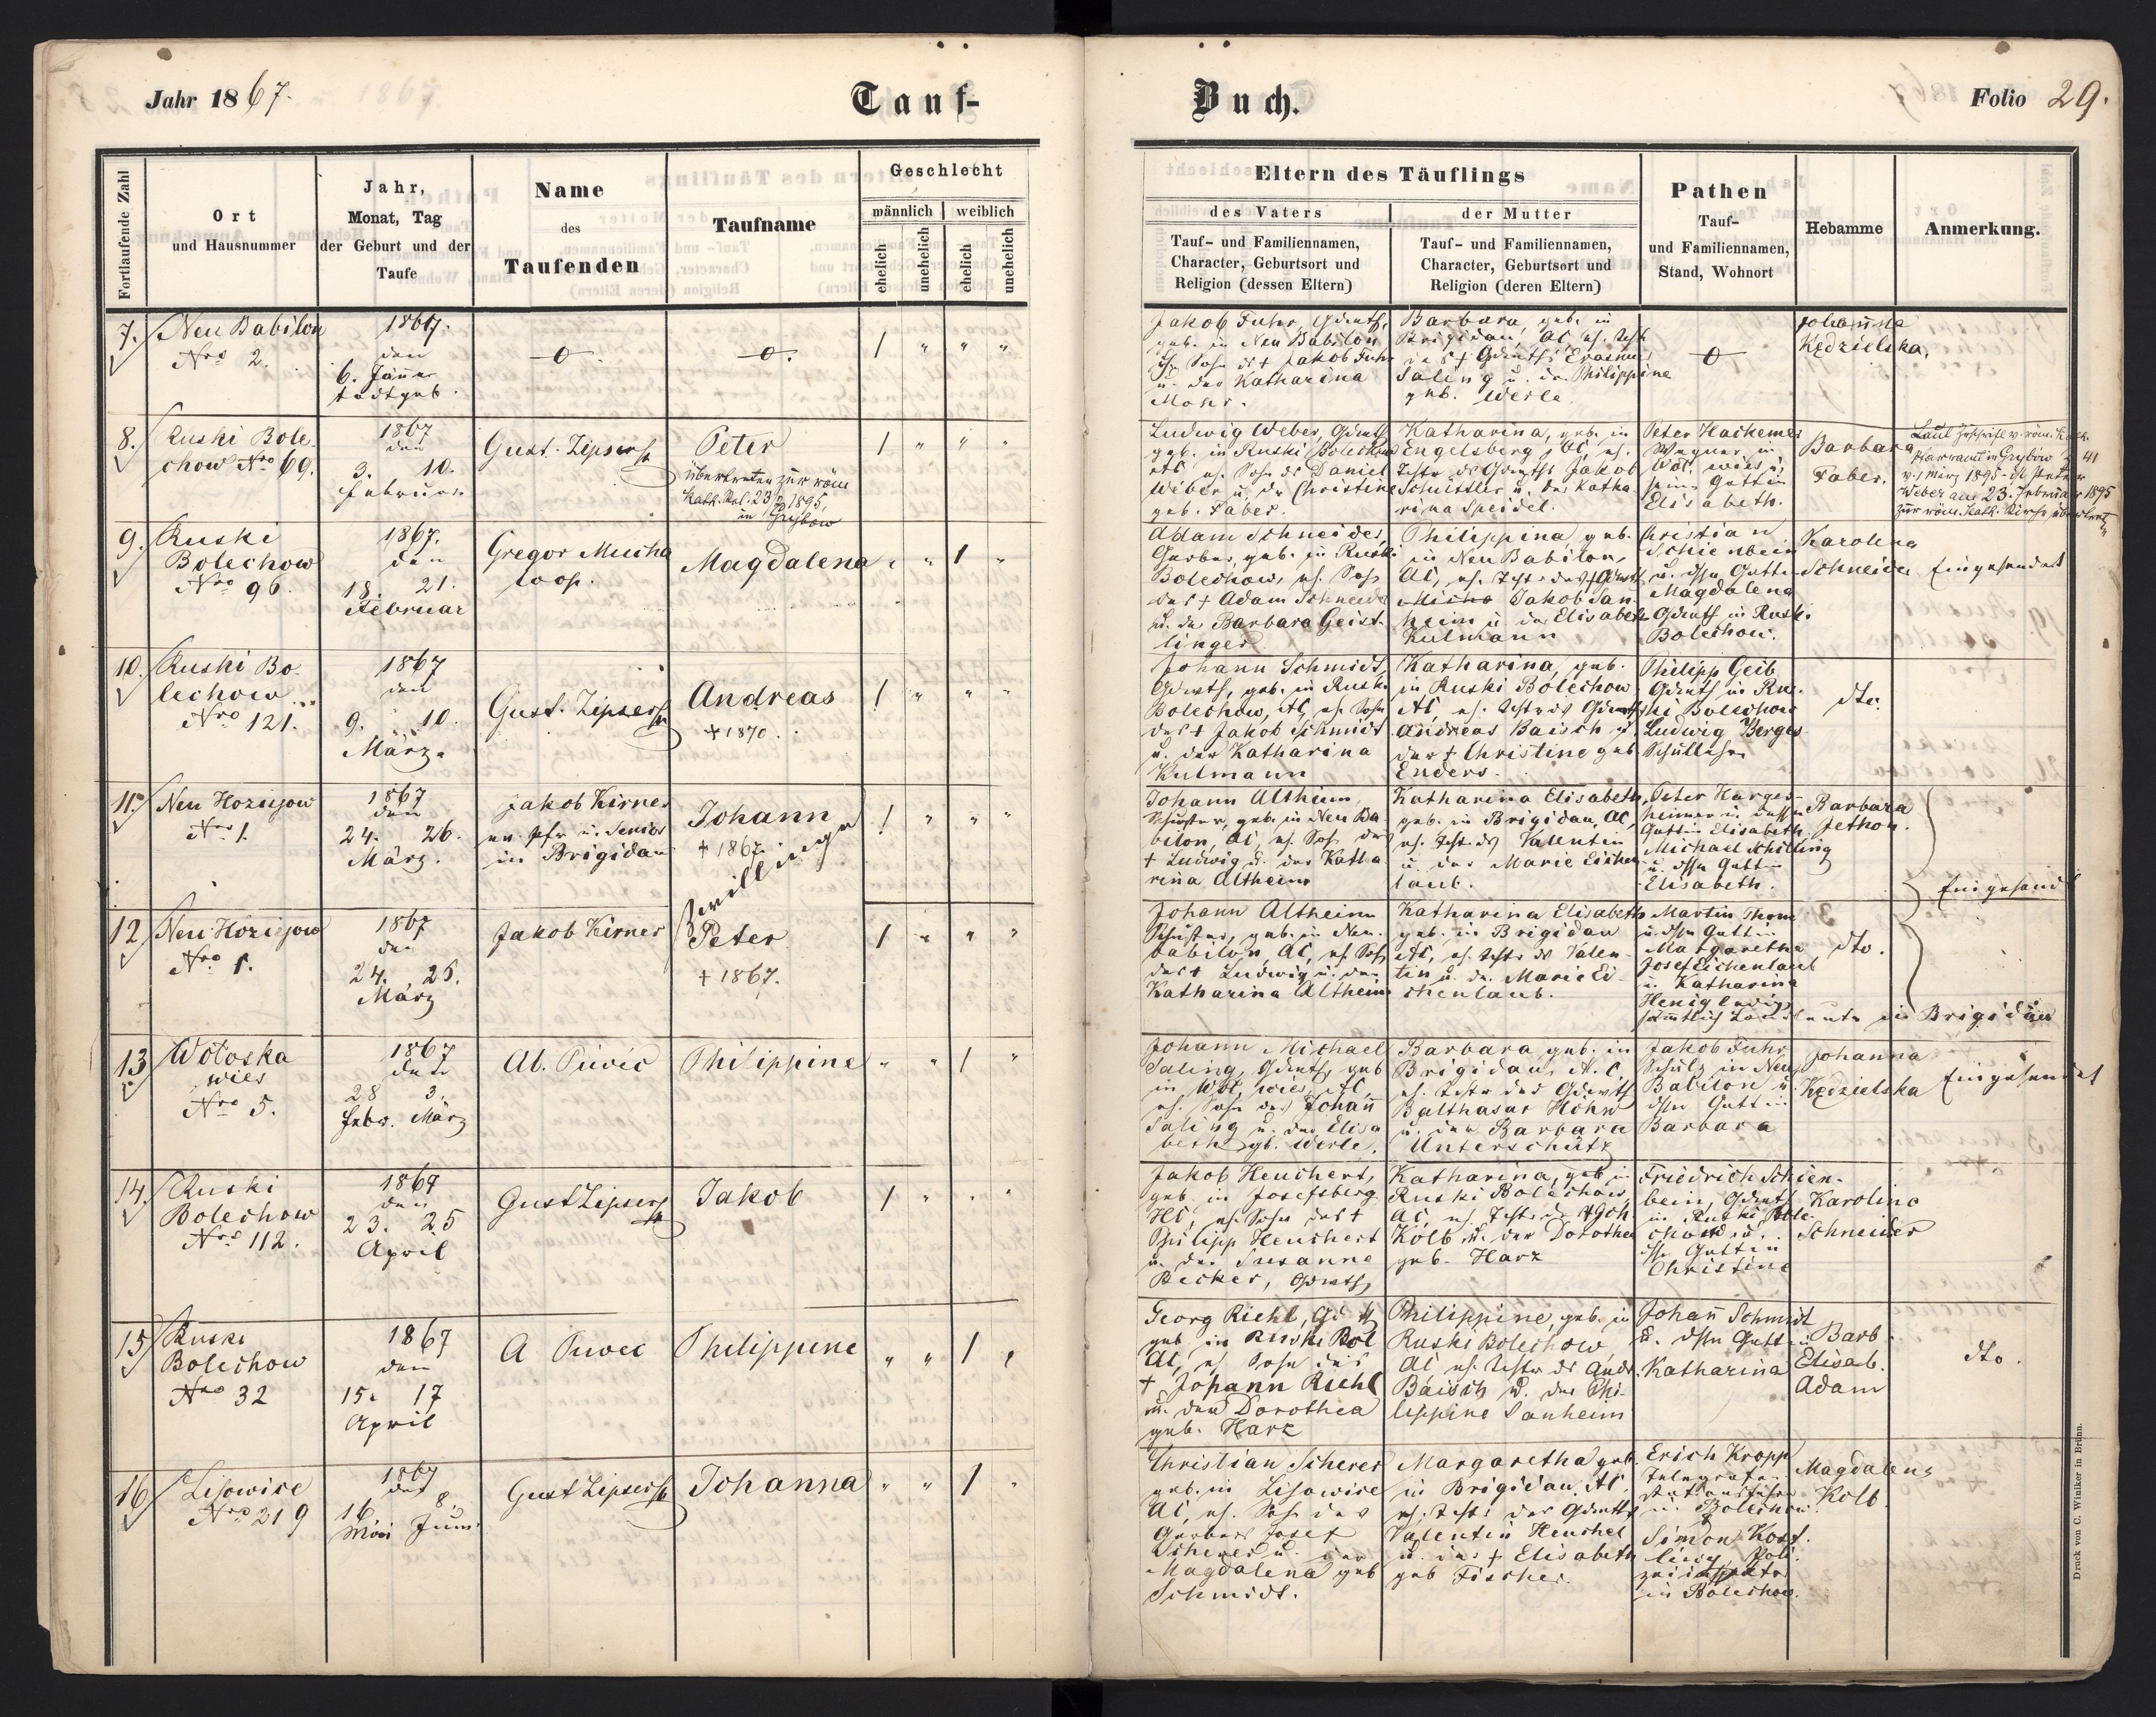 Jahr 1867.
Tauf-
Buch.
Folio 29.
Fortlaufende Zahl
Ort
und Hausnummer
Jahr,
Monat, Tag
der Geburt und der
Taufe
Name
des
Taufenden
Taufname
Geschlecht
männlich
weiblich
ehelich
unehelich
ehelich
unehelich
Eltern des Täuflings
des Vaters
Tauf- und Familiennamen,
Character, Geburtsort und
Religion (dessen Eltern)
der Mutter
Tauf- und Familiennamen,
Character, Geburtsort und
Religion (deren Eltern)
Pathen
Tauf-
und Familiennamen,
Stand, Wohnort
Hebamme
Anmerkung.
7.
Neu Babilon
Nro 2.
1867.
den
6. Jänner
todtgeb.
Jakob Fuhr,
geb. in Neu Babilon
Sohn des † Jakob Fuhr
u. der Katharina
Moser.
Barbara, geb. in
Brigidau, AC,
Saling u. der Philippine
geb. Werle.
Johanna
Kędzielska.
8.
Ruski Bole-
chow Nro 69.
1867
den
3. 10.
Februar
Gust. Zipser
Peter
übertreten zur röm
kath. Rel. 23/2 1895,
in Grybow
Ludwig Weber,
geb. in Ruski Bolechow
AC, eh. Sohn des Daniel
Weber u. der Christine
geb. Faber.
Katharina, geb. in
Engelsberg, AC, eh.
Jakob
Schüttler u. der Katha-
rina Speidel.
Peter Hachemer
Wagner in
Woł. wies u.
seine Gattin
Elisabeth.
Barbara
Faber.
Laut Zuschrift v. röm. Kath.
Pfarramt in Grybow Z 41
v. 1 März 1895 ist Peter
Weber am 23. Februar 1895
zur röm. Kath. Kirche
9.
Ruski
Bolechow
Nro 96.
1867.
den
18. 21.
Februar
Gregor Mucha
Coop.
Magdalena
Adam Schneider,
Gerber, geb. in Ruski
Bolechow, eh. Sohn
des † Adam Schneider
u. der Barbara Geist-
linger
Philippina geb.
in Neu Babilon,
AC, eh.
Jakob San-
heim u. der Elisabeth
Kulmann
Christian
Schienbein
u. dessen Gattin
Magdalena
in Ruski
Bolechow.
Karolina
Schneider
Eingesendet
10.
Ruski Bo-
lechow
Nro 121.
1867
den
9. 10.
März.
Gust. Zipser
Andreas
† 1870.
Johann Schmidt,
geb. in Ruski
Bolechow, AC, eh. Sohn
des † Jakob Schmidt
u. der Katharina
Kulmann
Katharina, geb.
in Ruski Bolechow
AC, eh.
Andreas Baisch u.
der † Christine geb
Enders.
Philipp Geib
in Rus-
ki Bolechow
Ludwig Berges
Schullehrer
dto.
11.
Neu Hoziejow
Nro 1.
1867
den
24. 26.
März.
Jakob Kirner
ev. Pfr u. Senior
in Brigidau
Johann
† 1867.
Zwillinge
Johann Altheim,
Schuster, geb. in Neu Ba-
bilon, AC, eh. Sohn des
† Ludwig u. der Katha-
rina Altheim
Katharina Elisabeth,
geb. in Brigidau, AC,
Valentin
u. der Marie Eichen-
laub.
Peter Harges-
heimer u. dessen
Gattin Elisabeth
Michael Schilling
u. dessen Gattin
Elisabeth.
Barbara
Jethon.
Eingesend
12
Neu Hoziejow
Nro 1.
1867
den
24. 26.
März
Jakob Kirner
Peter
† 1867.
Johann Altheim
Schuster, geb. in Neu-
babilon, AC, eh. Sohn
des † Ludwig u. der
Katharina Altheim
Katharina Elisabeth
geb. in Brigidau
AC, eh. Valen-
tin u. der Marie Ei-
chenlaub.
Martin Thom
u. dessen Gattin
Margaretha
Josef Eichenlaub
u. Katharina
Henig ledig,
sämtlich Landleute in Brigidau
dto.
13
Wołoska
wies
Nro 5.
1867
den
28 3.
Febr. März
Ab. Piwec
Philippine
Johann Michael
Saling, geb
in Woł. wies, AC,
eh. Sohn des Johann
Saling u. der Elisa-
beth gb. Werle.
Barbara geb. in
Brigidau, A.C,
Balthasar Höhn
u. der Barbara
Unterschütz
Jakob Fuhr
Schulz in Neu
Babilon u.
dessen Gattin
Barbara
Johanna
Kędzielska
Eingesendet
14.
Ruski
Bolechow
Nro 112.
1867
den
23. 25
April
Gust Zipser
Jakob
Jakob Heuchert,
geb. in Josefsberg
HC, eh. Sohn des †
Philipp Heuchert
u. der Susanne
Becker,
Katharina, geb in
Ruski Bolechow,
AC, eh.
Kolb u. der Dorothea
geb. Harz
Friedrich Schien-
bein,
in Ruski Bole-
chow u.
dessen Gattin
Christine
Karoline
Schneider
15
Ruski
Bolechow
Nro 32
1867
den
15. 17
April
A Piwec
Philippine
Georg Riehl,
geb in Ruski Bol
AC, eh Sohn des
† Johann Riehl
u. der Dorothea
geb. Harz
Philippine, geb. in
Ruski Bolechow,
AC eh. Andr.
Baisch u. der Phi-
lippine Sanheim
Johann Schmidt
u. dessen Gattin
Katharina
Barb.
Elisab.
Adam
dto.
16
Lisowice
Nro 219
1867
den
16 8.
Mai Juni
Gust Zipser
Johanna
Christian Scherer
geb. in Lisowice
AC, eh. Sohn des
Gerbers Josef
Scherer u. der
Magdalena geb
Schmidt.
Margaretha geb
in Brigidau, AC.
Valentin Heuchel
u. der † Elisabeth
geb Fischer.
Erich Kropp
Telegrafen-
in Bolechow.
Simon Kost-
Poli-
zeiinspektor
in Bolechow.
Magdalena
Kolb
Druck von C. Winiker in Brünn.